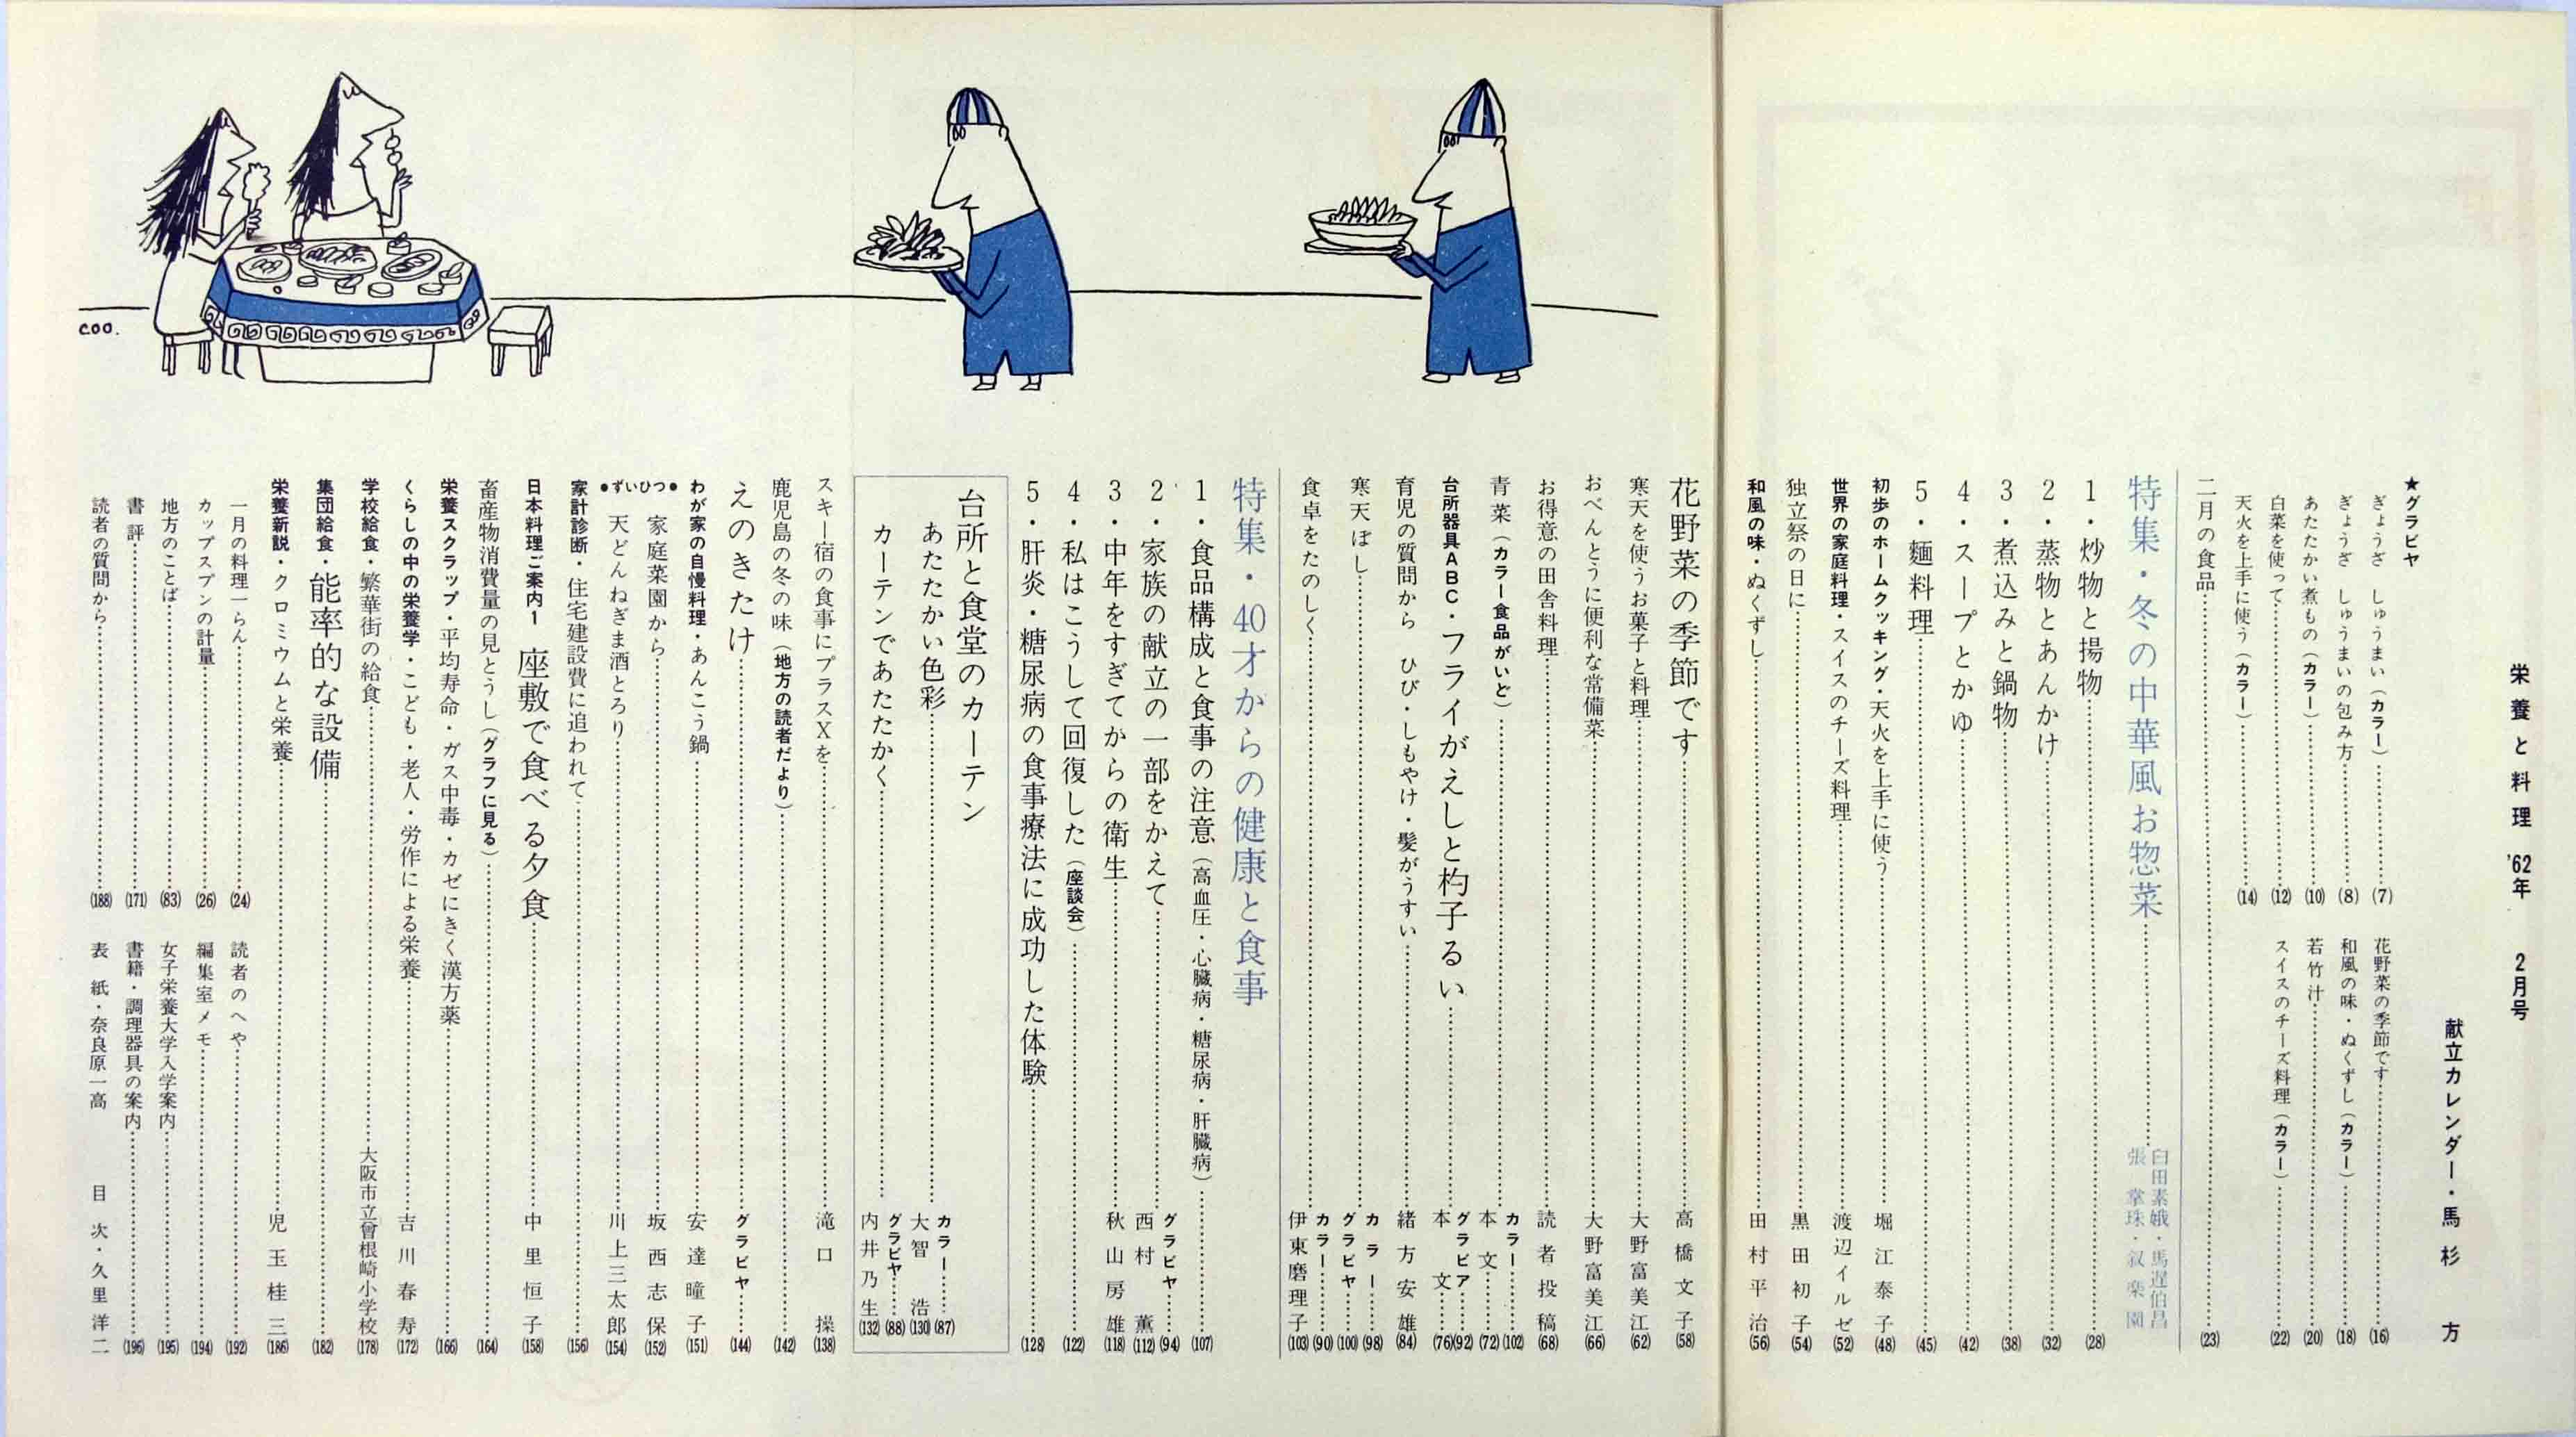 栄養と料理 '62年 2月号
献立カレンダー・馬杉 方
★グラビヤ
ぎょうざ しゅうまい(カラー)……(7)
ぎょうざ しゅうまいの包み方……(8)
あたたかい煮もの(カラー)……(10)
白菜を使って……(12)
天火を上手に使う(カラー)……(14)
花野菜の季節です……(16)
和風の味・ぬくずし(カラー)……(18)
若竹汁……(20)
スイスのチーズ料理(カラー)……(22)
二月の食品……(23)
特集・冬の中華風お惣菜……臼田素娥・馬遅伯昌
張掌珠・叙楽園
1・炒物と揚物……(28)
2・蒸物とあんかけ……(32)
3・煮込みと鍋物……(38)
4・スープとかゆ……(42)
5・麺料理……(45)
初歩のホームクッキング・天火を上手に使う……堀江泰子(48)
世界の家庭料理・スイスのチーズ料理……渡辺イルゼ(52)
独立祭の日に……黒田初子(54)
和風の味・ぬくずし……田村平治(56)
花野菜の季節です……高橋文子(58)
寒天を使うお菓子と料理……大野富美江(62)
おべんとうに便利な常備菜……大野富美江(66)
お得意の田舎料理……読者投稿(68)
青菜(カラー食品がいど)……カラー……(102)
本文……(72)
台所器具ABC・フライがえしと杓子るい……グラビア……(92)
本文(76)
育児の質問から ひび・しもやけ・髪がうすい……緒方安雄(84)
寒天ぼし……カラー……(98)
グラビヤ……(100)
食卓をたのしく……カラー……(90)
伊東磨理子(103)
特集・40才からの健康と食事
1・食品構成と食事の注意(高血圧・心臓病・糖尿病・肝臓病)……(107)
2・家族の献立の一部をかえて……グラビヤ……(94)
西村薫(112)
3・中年をすぎてからの衛生……秋山房雄(118)
4・私はこうして回復した(座談会)……(122)
5・肝炎・糖尿病の食事療法に成功した体験……(128)
台所と食堂のカーテン
あたたかい色彩……カラー……(87)
大智浩(130)
カーテンであたたかく……グラビヤ……(88)
内井乃生(132)
スキー宿の食事にプラスXを……滝口操(138)
鹿児島の冬の味(地方の読者だより)……(142)
えのきたけ……グラビヤ……(144)
わが家の自慢料理・あんこう鍋……安達瞳子(151)
●ずいひつ●
家庭菜園から……坂西志保(152)
天どんねぎま酒とろり……川上三太郎(154)
家計診断・住宅建設費に追われて……(156)
日本料理ご案内1 座敷で食べる夕食……中里恒子(158)
畜産物消費量の見とうし(グラフに見る)……(164)
栄養スクラップ・平均寿命・ガス中毒・カゼにきく漢方薬……(166)
くらしの中の栄養学・こども・老人・労作による栄養……吉川春寿(172)
学校給食・繁華街の給食……大阪市立曾根崎小学校(178)
集団給食・能率的な設備……(182)
栄養新説・クロミウムと栄養……児玉桂三(186)
一月の料理一らん……(24)
カップスプンの計量……(26)
地方のことば……(83)
書評……(171)
読者の質問から……(188)
読者のへや……(192)
編集室メモ……(194)
女子栄養大学入学案内……(195)
書籍・調理器具の案内……(196)
表紙・奈良原一高 目次・久里洋二
COO.